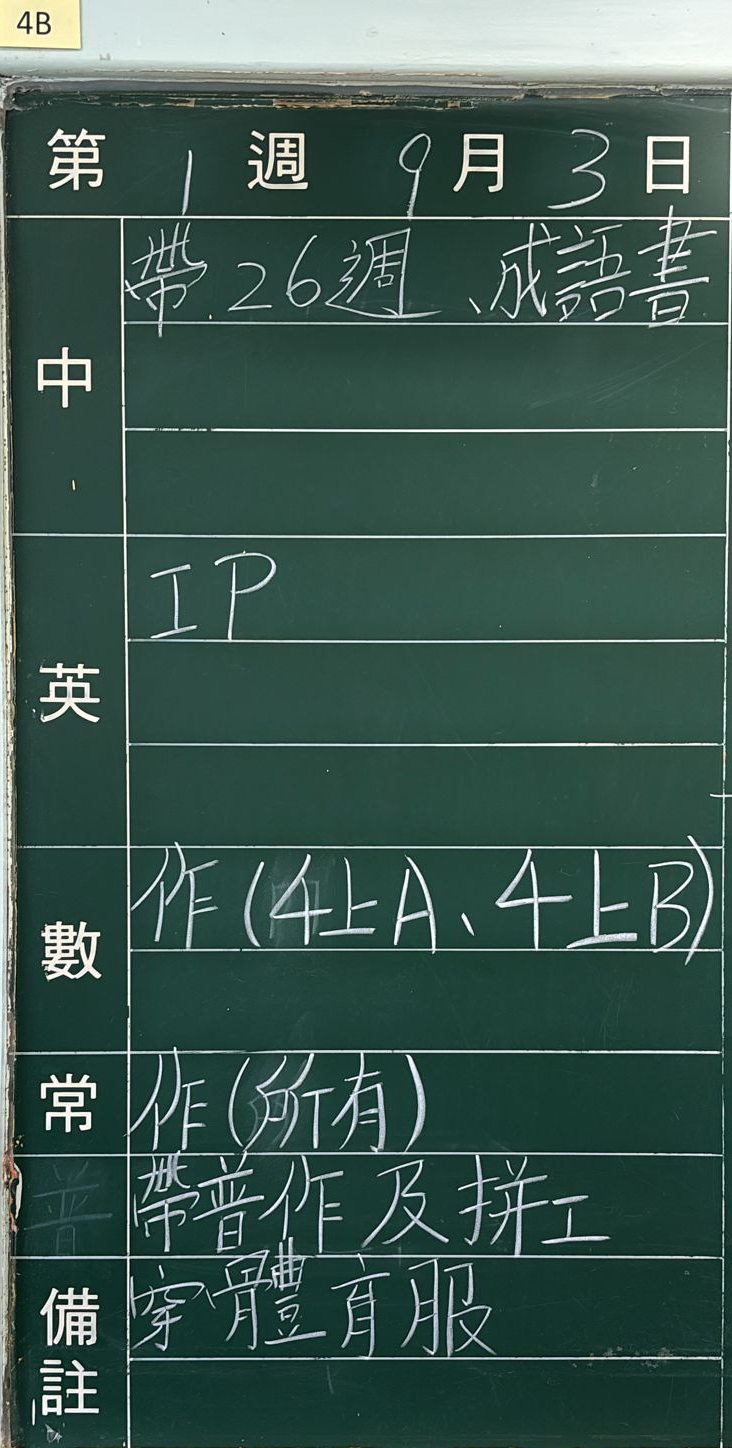 4B
第 1 週 9 月 3 日
中 帶 26週、成語書
英 IP
數 作(4上A、4上B)
常 作(所有)
普 帶普作及拼工
備註 穿體育服